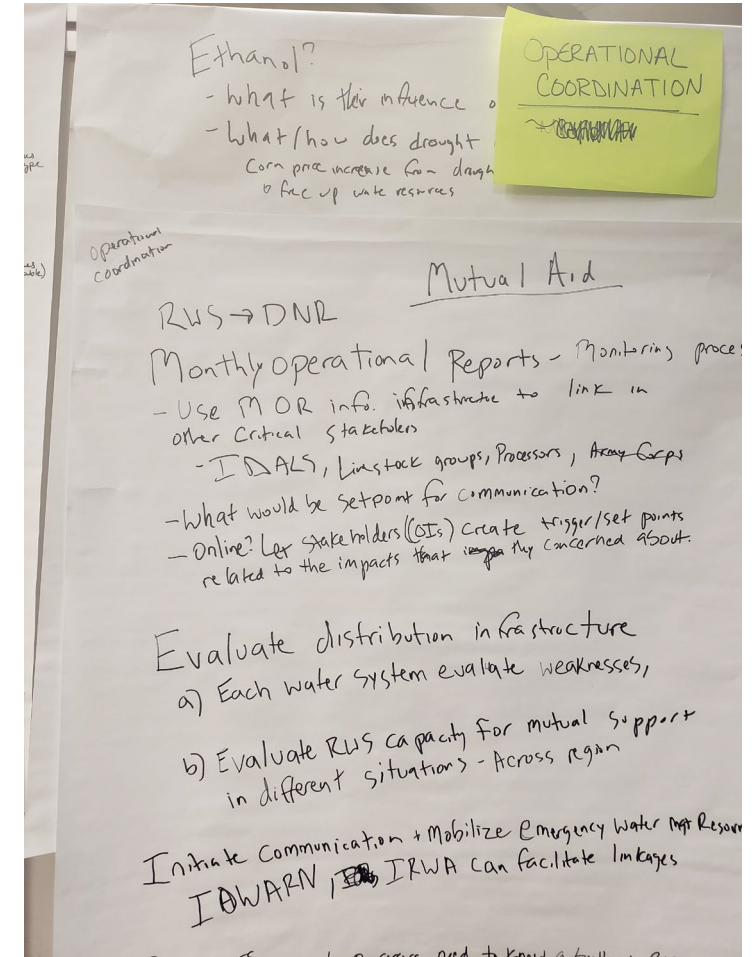 Ethanol?
- What is their influence o
- What/how does drought
Corn price increase from drough
to free up wate resources
OPERATIONAL
COORDINATION
operational
coordination
Mutual Aid
RWS → DNR
Monthly operational Reports - Monitoring proces
- Use MOR info. infrastructre to link in
other Critical Staketolers
- IDALS, Livestock groups, Processors, Army Corps
- What would be setpoint for communication?
- Online? Let stakeholders ( create trigger/set points
related to the impacts that they concerned about.
Evaluate distribution infrastructure
a) Each water system evaluate weaknesses,
b) Evaluate RWS capacity for mutual support
in different situations - Across region
Initiate communication + Mobilize emergency water mgt Resour
IOWARN, IRWA can facilitate linkages
need to know a